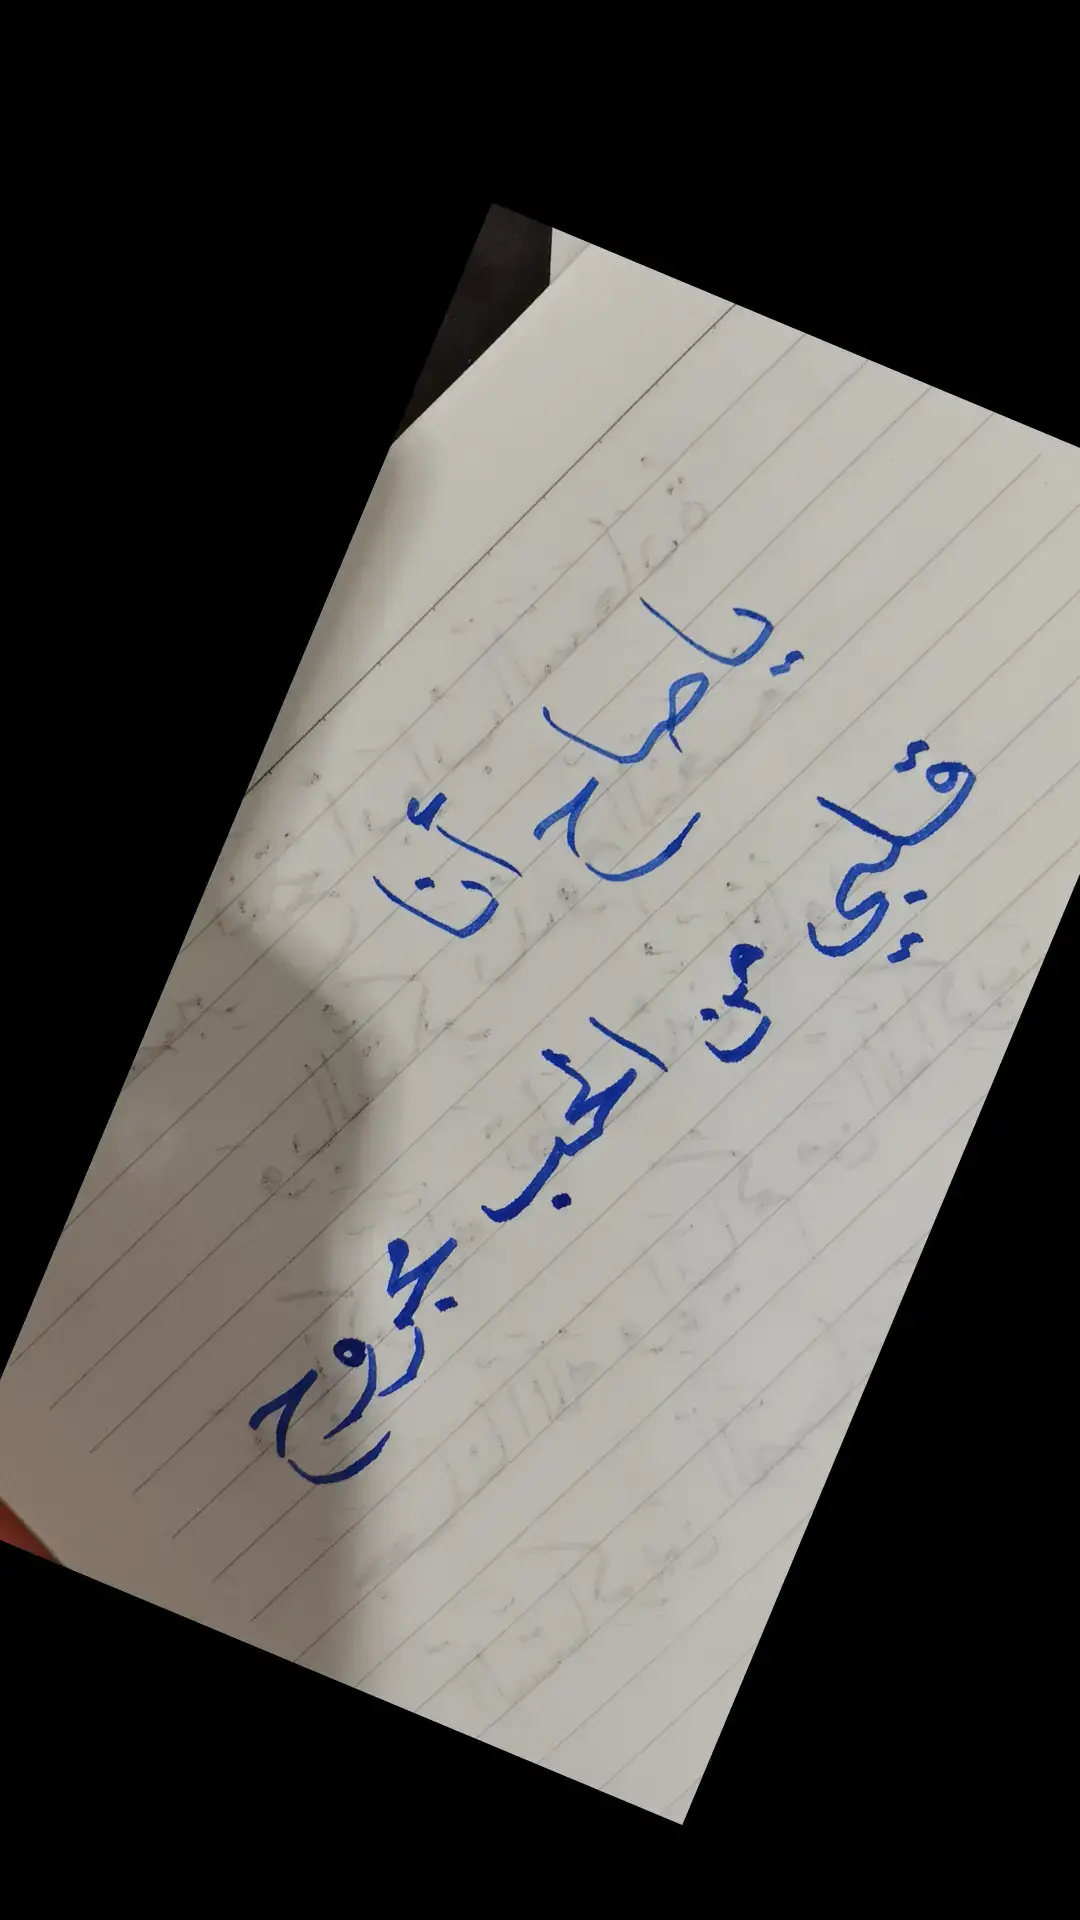 يا صاح أنا
قلبي من الحب مجروح